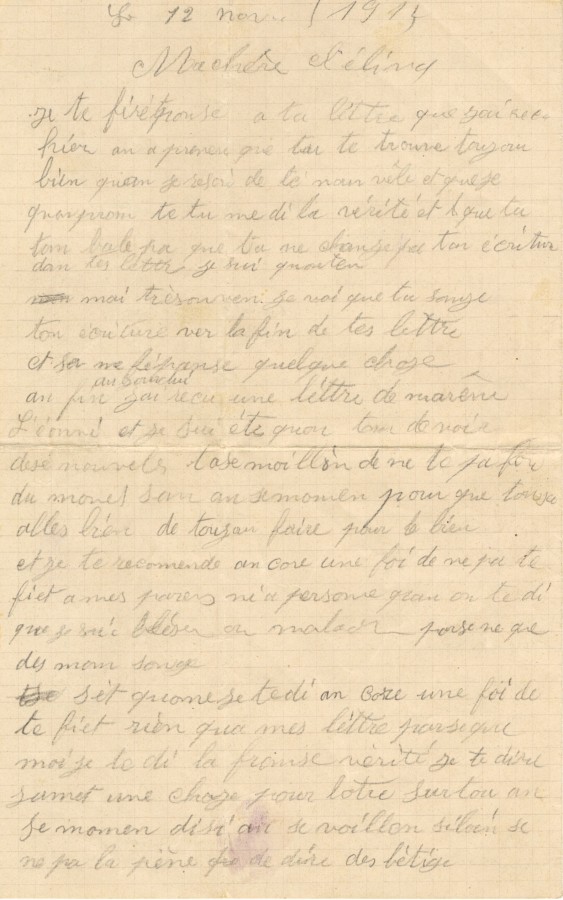 Le 12 nov 1915
Ma chère Céline
je te fi réponse a ta lèttre que jai recu
hier an aprenen que tu te trouve toujou
bien quan je resoi de té nouvèle et que je
quonprom te tu me di la vérité et que tu
tan bale pa que tu ne change pa ton écritur
dan tes lèttre je sui quonten
moi trèsouven je voi que tu change
ton écriture ver la fin de tes lèttre
et sa me fé panse quelque chose
an fin aujourdui jai recu une lèttre de marène
Léonni et je sui été quon tan de voir
desé nouveles tase moilloin de ne te pa fir
du monde san an se momen pour que tousse
alles bien de toujou faire pour le bien
et je te recomende an core une foi de ne pa te
fiet a mes parens ni a persone quan on te di
que je sui bléser ou malade parse ne que
des man songe
sèt quome je te di an core une foi de
te fiet rièn qua mes lèttre parseque
moi je te di la franse vérité je te diré
jamet une chose pour lotre surtou an
se momen disi an se voillon siloin se
ne pa la pène de dire des bétige